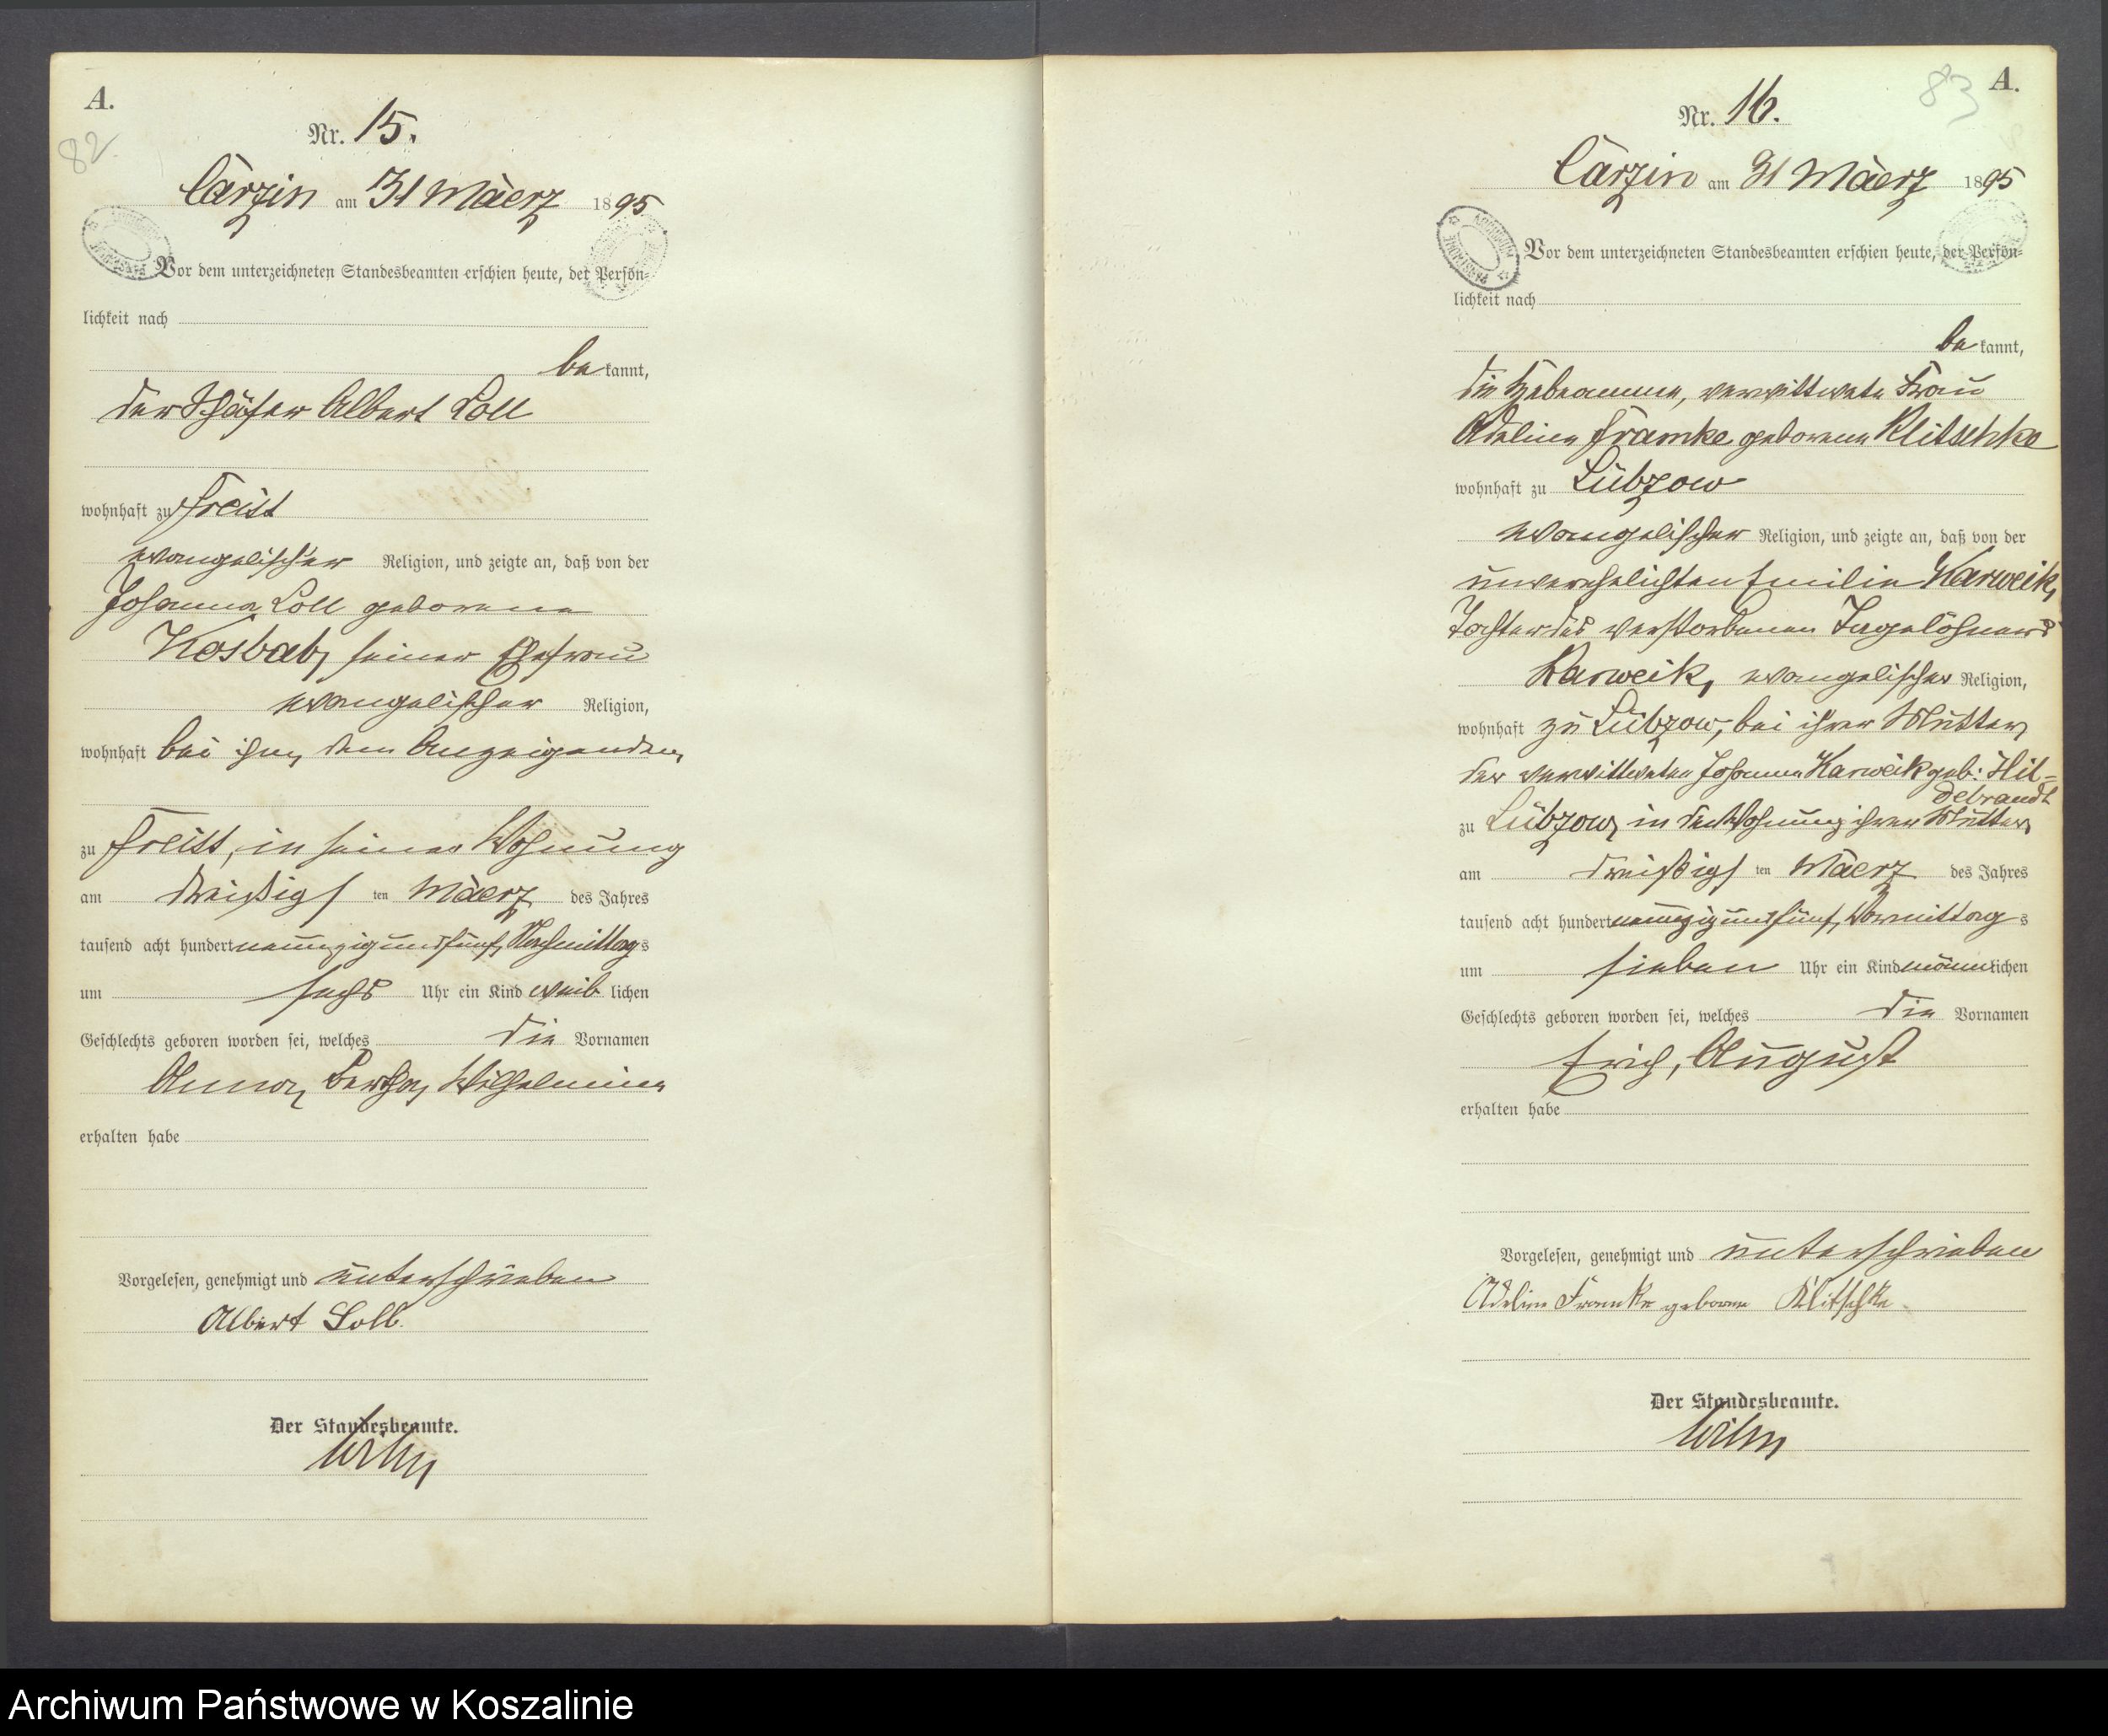 A.
82.
Nr. 15.
Carzin am 31 Maerz 1895
Vor dem unterzeichneten Standesbeamten erschien heute, der Persön-
lichkeit nach
be kannt,
der Schäfer Albert Loll
wohnhaft zu Freist
evangelischer Religion, und zeigte an, daß von der
Johanna Loll geborene
Kosbab, seiner Ehefrau
evangelischer Religion,
wohnhaft bei ihm, dem Anzeigenden,
zu Freist, in seiner Wohnung
am dreißigs ten Maerz des Jahres
tausend acht hundert neunzig und fünf, Nachmittags
um sechs Uhr ein Kind weib lichen
Geschlechts geboren worden sei, welches die Vornamen
Anna, Bertha, Wilhelmine
erhalten habe
Vorgelesen, genehmigt und unterschrieben
Albert Loll.
Der Standesbeamte.
Wilm
83
A.
Nr. 16.
Carzin am 31 Maerz 1895
Vor dem unterzeichneten Standesbeamten erschien heute, der Persön-
lichkeit nach
be kannt,
die Hebeamme, verwittwete Frau
Adeline Framke geborene Klitschke
wohnhaft zu Lübzow
evangelischer Religion, und zeigte an, daß von der
unverehelichten Emilie Karweik,
Tochter des verstorbenen Tagelöhners
Karweik, evangelischer Religion,
wohnhaft zu Lübzow, bei ihrer Mutter,
der verwittweten Johanna Karweik geb: Hil-
debrandt
zu Lübzow, in der Wohnung ihrer Mutter,
am dreißigs ten Maerz des Jahres
tausend acht hundert neunzig und fünf, Vormittags
um sieben Uhr ein Kind männlichen
Geschlechts geboren worden sei, welches die Vornamen
Erich, August
erhalten habe
Vorgelesen, genehmigt und unterschrieben
Adeline Framke geborene Klitschke
Der Standesbeamte.
Wilm
Archiwum Państwowe w Koszalinie